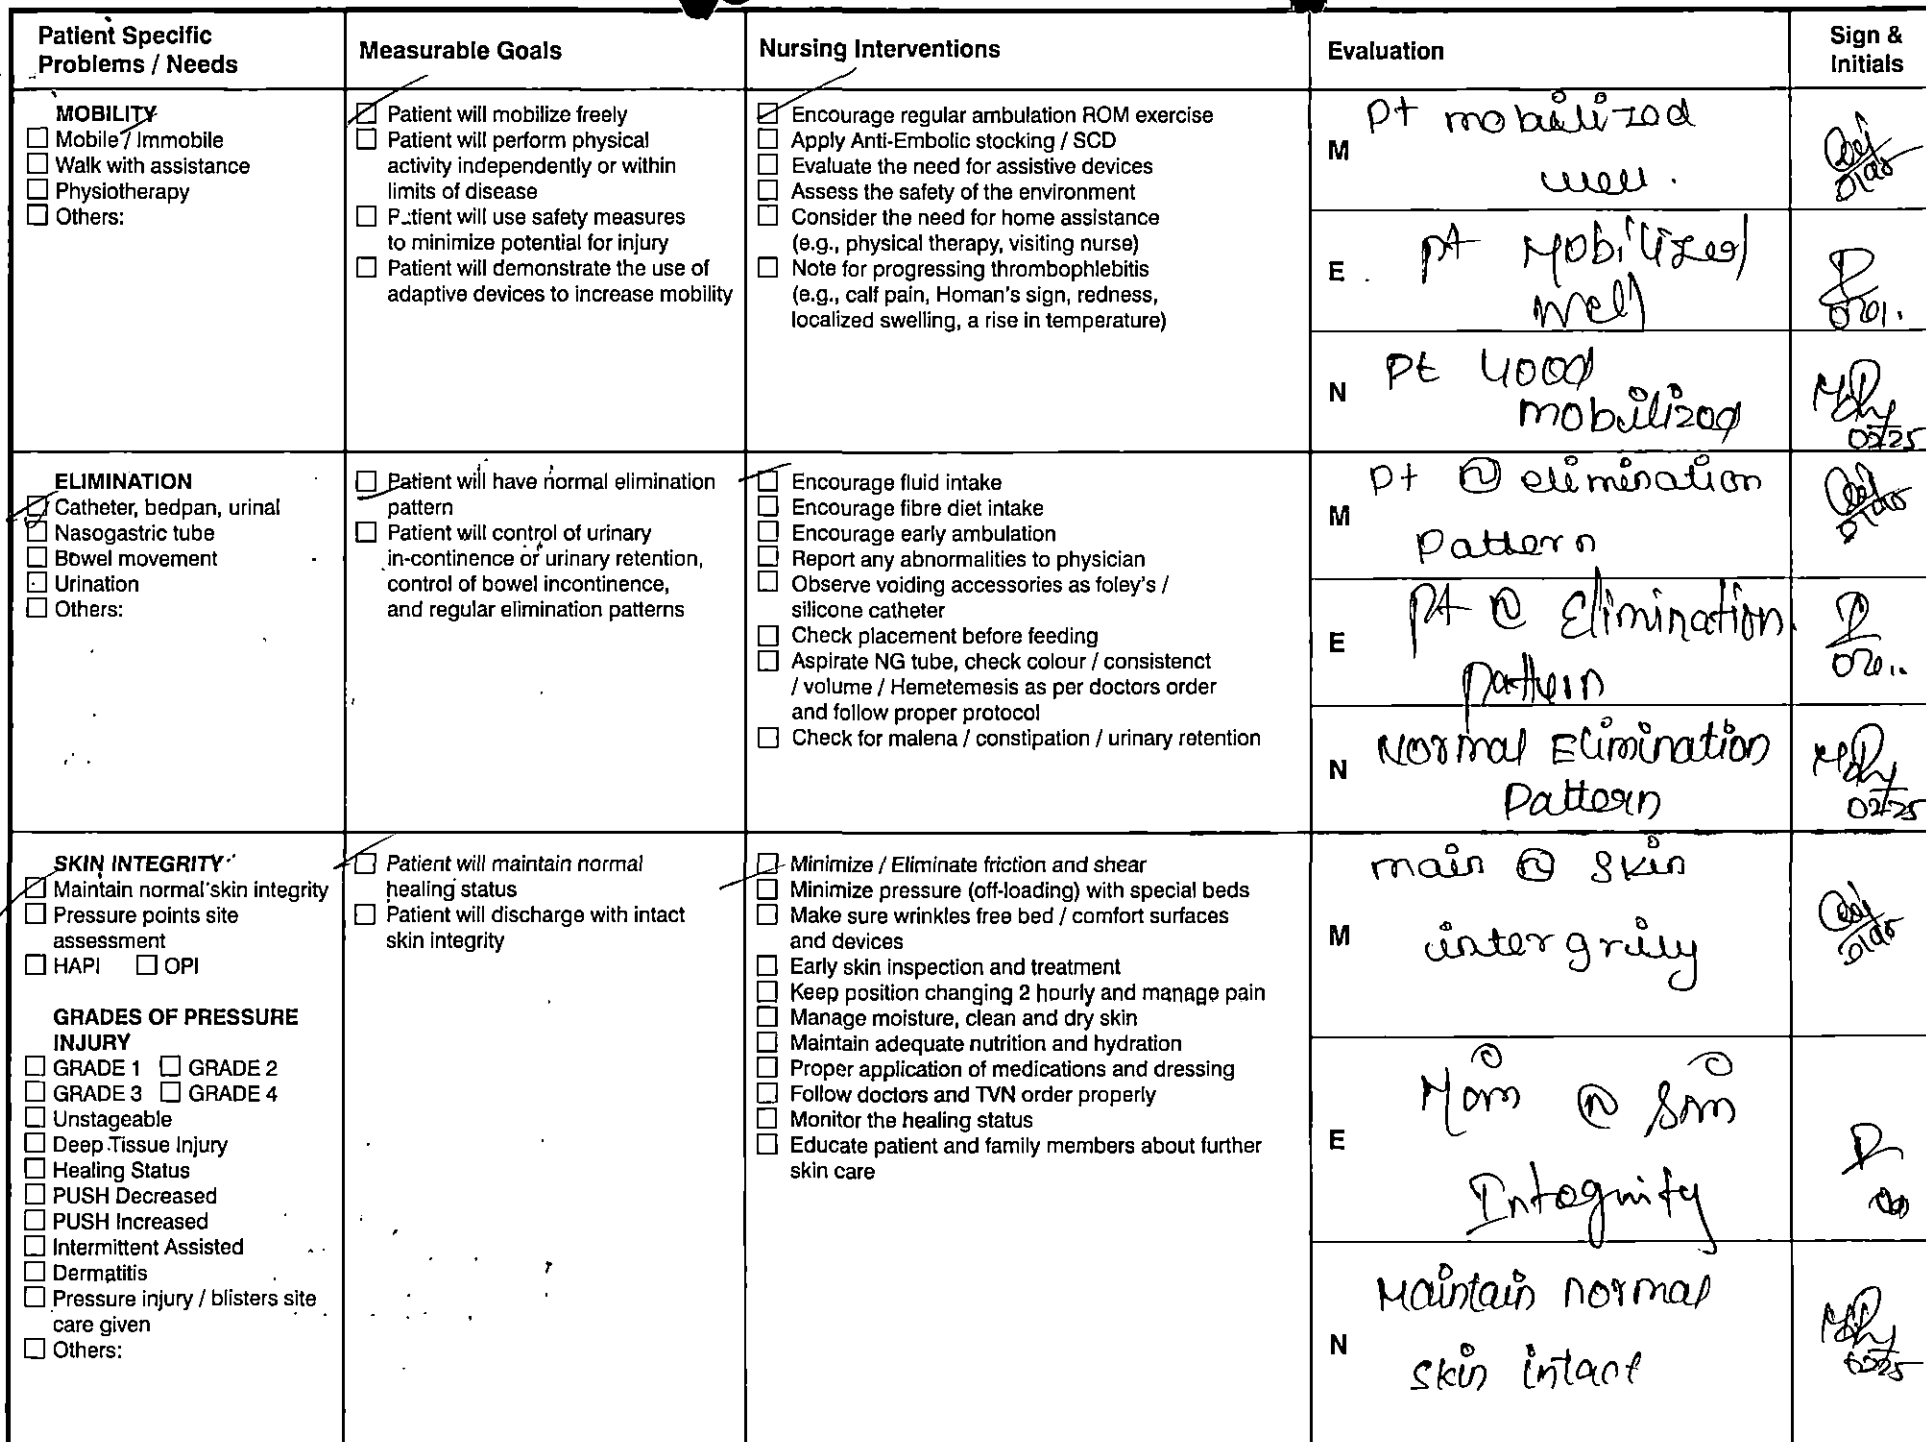 Patient Specific
Problems / Needs
Measurable Goals
Nursing Interventions
Evaluation
Sign &
Initials
MOBILITY
☐ Mobile / Immobile
☐ Walk with assistance
☐ Physiotherapy
☐ Others:
☑ Patient will mobilize freely
☐ Patient will perform physical
activity independently or within
limits of disease
☐ Patient will use safety measures
to minimize potential for injury
☐ Patient will demonstrate the use of
adaptive devices to increase mobility
☑ Encourage regular ambulation ROM exercise
☐ Apply Anti-Embolic stocking / SCD
☐ Evaluate the need for assistive devices
☐ Assess the safety of the environment
☐ Consider the need for home assistance
(e.g., physical therapy, visiting nurse)
☐ Note for progressing thrombophlebitis
(e.g., calf pain, Homan's sign, redness,
localized swelling, a rise in temperature)
M
Pt mobilized
well.
E
pt Mobilized
well
N
Pt Good
mobilized
0225
ELIMINATION
☑ Catheter, bedpan, urinal
☐ Nasogastric tube
☐ Bowel movement
☐ Urination
☐ Others:
☑ Patient will have normal elimination
pattern
☐ Patient will control of urinary
in-continence or urinary retention,
control of bowel incontinence,
and regular elimination patterns
☑ Encourage fluid intake
☐ Encourage fibre diet intake
☐ Encourage early ambulation
☐ Report any abnormalities to physician
☐ Observe voiding accessories as foley's /
silicone catheter
☐ Check placement before feeding
☐ Aspirate NG tube, check colour / consistenct
/ volume / Hemetemesis as per doctors order
and follow proper protocol
☐ Check for malena / constipation / urinary retention
M
Pt ⓝ elimination
Pattern
E
pt ⓝ Elimination
pattern
N
Normal Elimination
Pattern
0225
SKIN INTEGRITY
☑ Maintain normal skin integrity
☐ Pressure points site
assessment
☐ HAPI ☐ OPI
GRADES OF PRESSURE
INJURY
☐ GRADE 1 ☐ GRADE 2
☐ GRADE 3 ☐ GRADE 4
☐ Unstageable
☐ Deep Tissue Injury
☐ Healing Status
☐ PUSH Decreased
☐ PUSH Increased
☐ Intermittent Assisted
☐ Dermatitis
☐ Pressure injury / blisters site
care given
☐ Others:
☑ Patient will maintain normal
healing status
☐ Patient will discharge with intact
skin integrity
☑ Minimize / Eliminate friction and shear
☐ Minimize pressure (off-loading) with special beds
☐ Make sure wrinkles free bed / comfort surfaces
and devices
☐ Early skin inspection and treatment
☐ Keep position changing 2 hourly and manage pain
☐ Manage moisture, clean and dry skin
☐ Maintain adequate nutrition and hydration
☐ Proper application of medications and dressing
☐ Follow doctors and TVN order properly
☐ Monitor the healing status
☐ Educate patient and family members about further
skin care
M
main ⓝ skin
intergrity
E
Main ⓝ Skin
Integrity
N
Maintain normal
skin intact